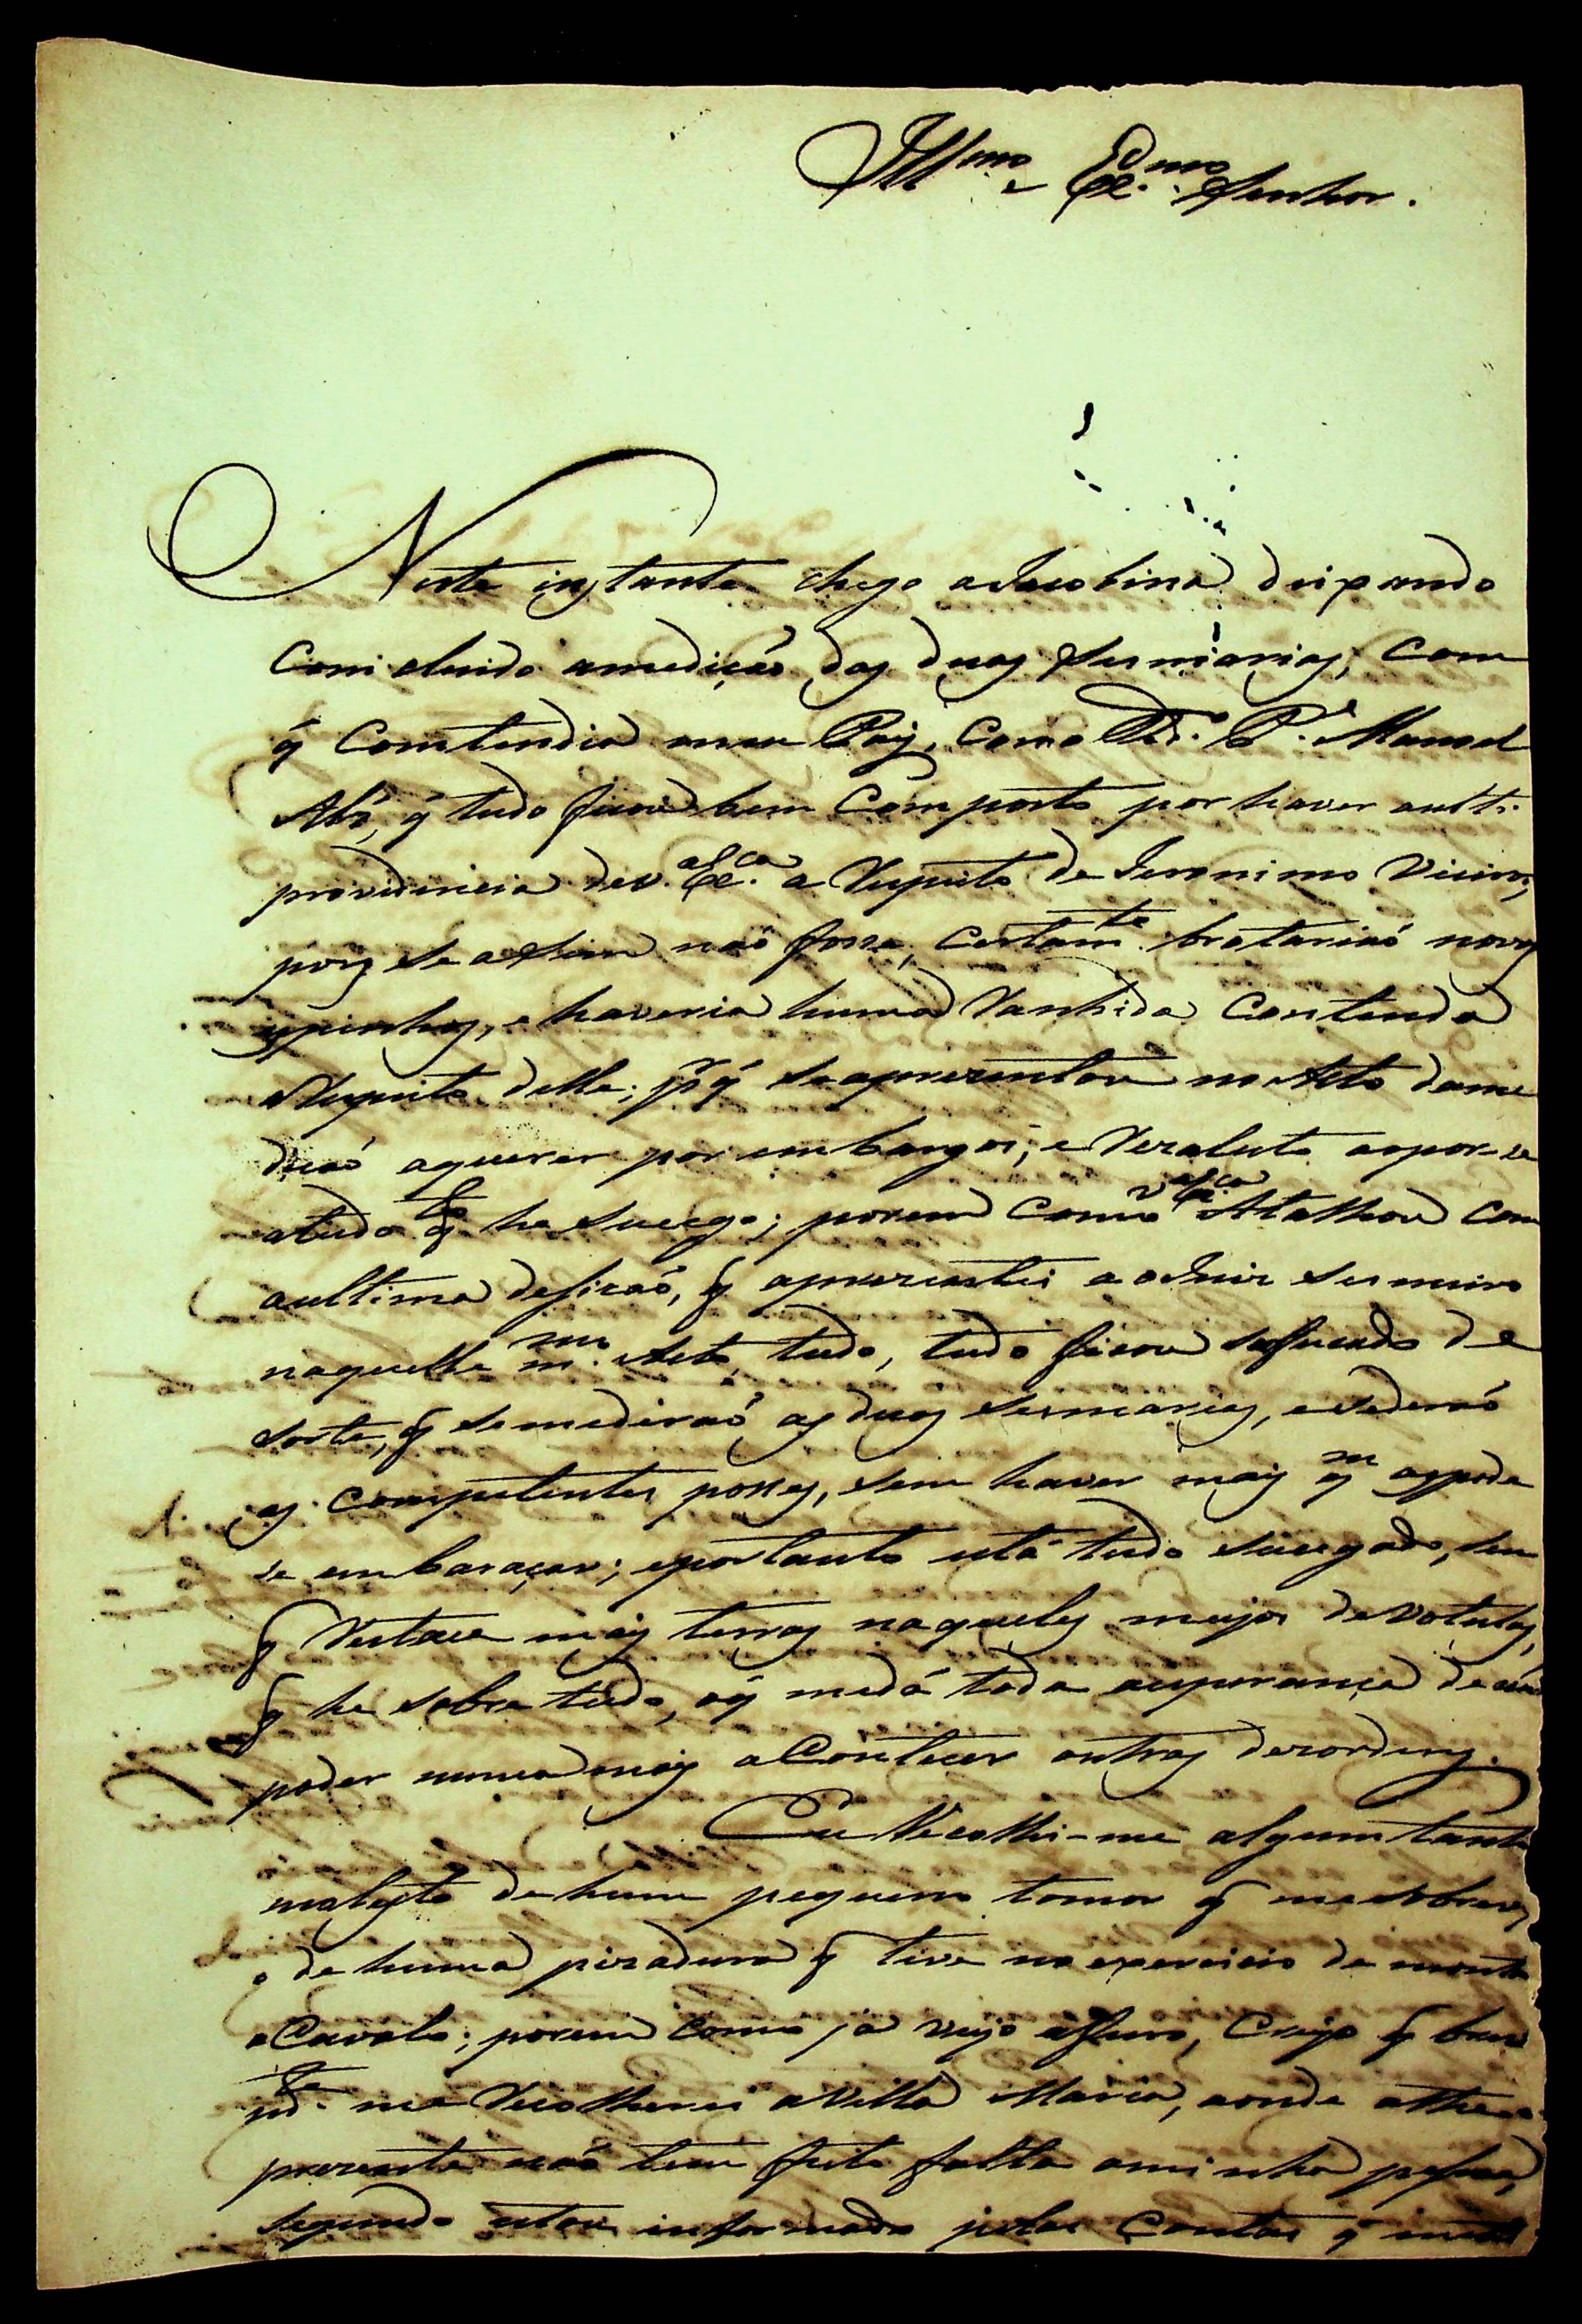 Ill.mo e Ex.mo Senhor.
Neste instante chego a Jacobina deixando
Concluido a medição das duas Sesmarias, Com
q̃ Contendia meu Pay, Com o R.do P.e Manoel
Alz', q̃ tudo ficou bem Composto por haver a ulti-
providencia de V. Ex.ca a Respeito de Jeronimo
pois se assim não fosse, Certam.te brotarião novos
espinhos, e haveria huma Renhida Contenda
a Respeito delle; p.r q̃ se aprezentou no Acto dame
dicão aquerer por embargos, e Rezoluto aopor-se
atudo q.to he sucego; porem Como V. Ex.ca Atalhou Com
aultima desizão, q̃ aprezentei ao Juiz Sesmeiro
naquelle m.mo Acto, tudo, tudo ficou sofucado de
sorte, q̃ se medirão as duas sesmarias, e sederão
as Competentes posses, sem haver mais q.m as pode
se embaraçar; eportanto está tudo sucegado, sem
q̃ Restace mais terras naqueles meyos devolutas,
q̃ he sobre tudo, oq̃ medá toda aesperança de não
poder nunca mais aContecer outras dezordens.
Eu Recolhi-me algum tanto
molesto de hum pequeno tomor q̃ me sobrev
de huma pizadura q̃ tive no exercicio de monta
aCavalo; porem como já vejo afuro, Creyo q̃ brev
me Recolherei aVilla Maria, aonde athe o
prezente não tem feito falta aminha pessoa,
segundo estou informado pelas Contas q̃